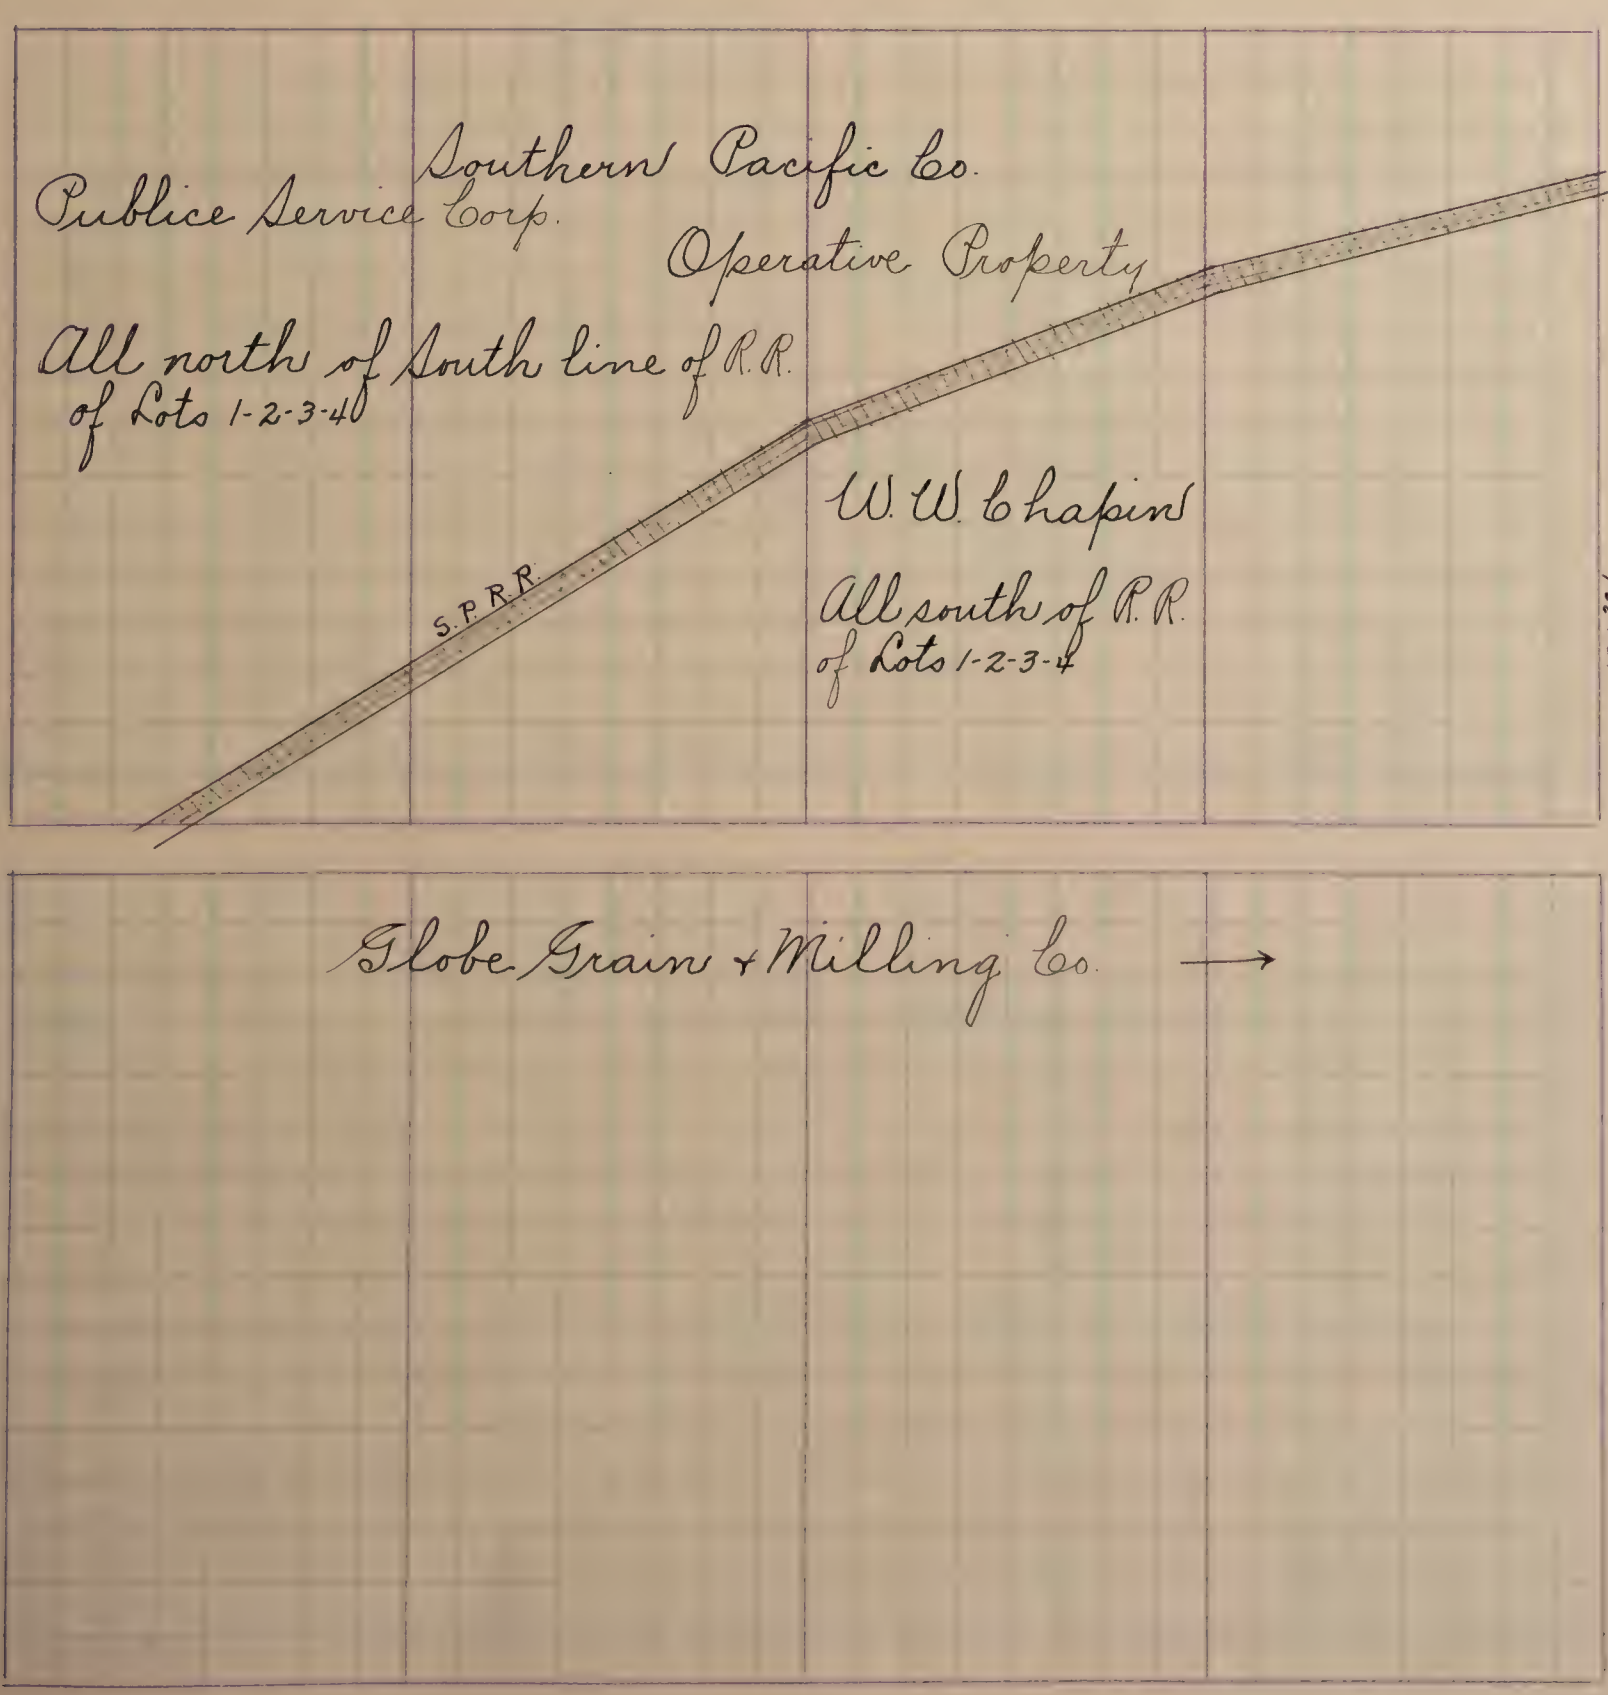 Southern Pacific Co.
Publice Service Corp.
Operative Property
All north of South line of R.R.
of Lots 1-2-3-4
S.P.R.R.
W. W. Chapin
All south of R.R.
of Lots 1-2-3-4
Globe Grain + Milling Co. →